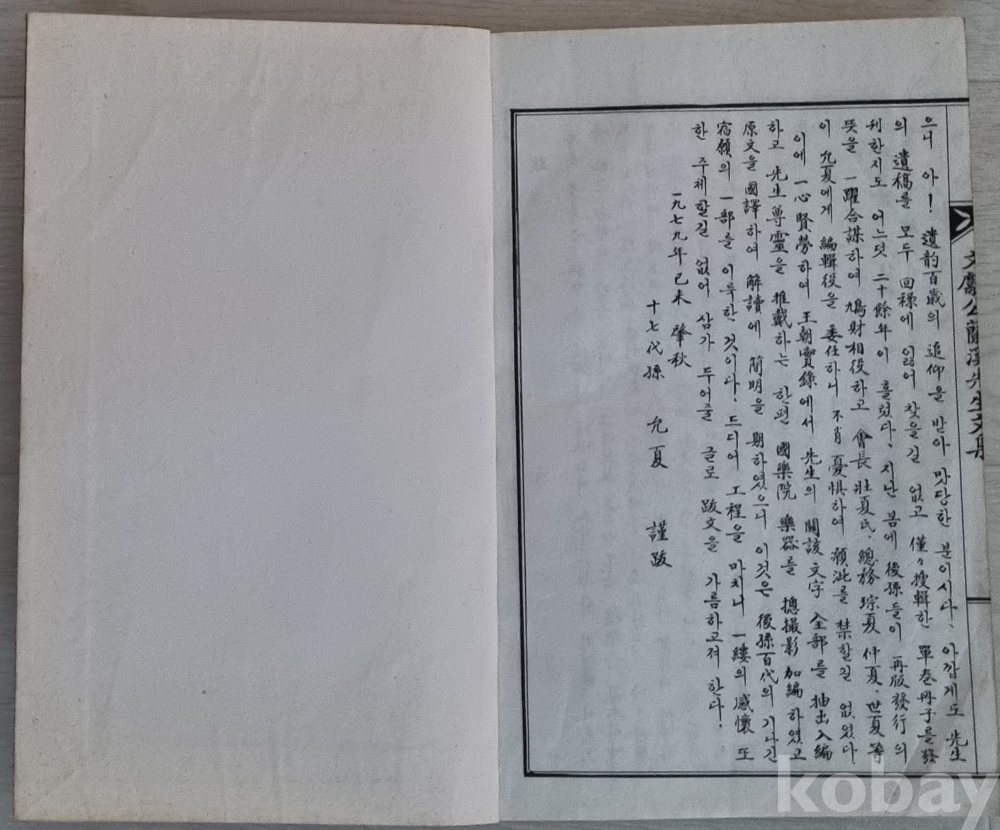 文獻公蘭溪先生文集
으니 아! 遺韵百歲의 追仰을 받아 맛당한 분이시다. 아깝게도 先生
의 遺稿를 모두 回祿에 잃어 찾을길 없고 僅々搜輯한 單卷冊子를發
刊한지도 어느덧 二十餘年이 흘렀다. 지난 봄에 後孫들이 再版發行의
뜻을 一躍合謀하여 鳩財相役하고 會長 壯夏氏, 總務 琮夏 仲夏, 世夏 等
이 允夏에게 編輯役을 委任하니 不肖 憂惧하여 顙泚를 禁할길 없었다
이에 一心賢勞하여 王朝實錄에서 先生의 關該文字 全部를 抽出入編
하고 先生尊靈을 推戴하는 한편 國樂院 樂器를 摠撮影 加編하였고
原文을 國譯하여 解讀에 簡明을 期하였으니 이것은 後孫百代의 기나긴
宿願의 一部를 이룩한 것이다. 드디어 工程을 마치니 一縷의 感懷 또
한 주체할길 없어 삼가 두어줄 글로 跋文을 가름하고져 한다!
一九七九年己未 肇秋
十七代孫 允夏 謹跋
kobay